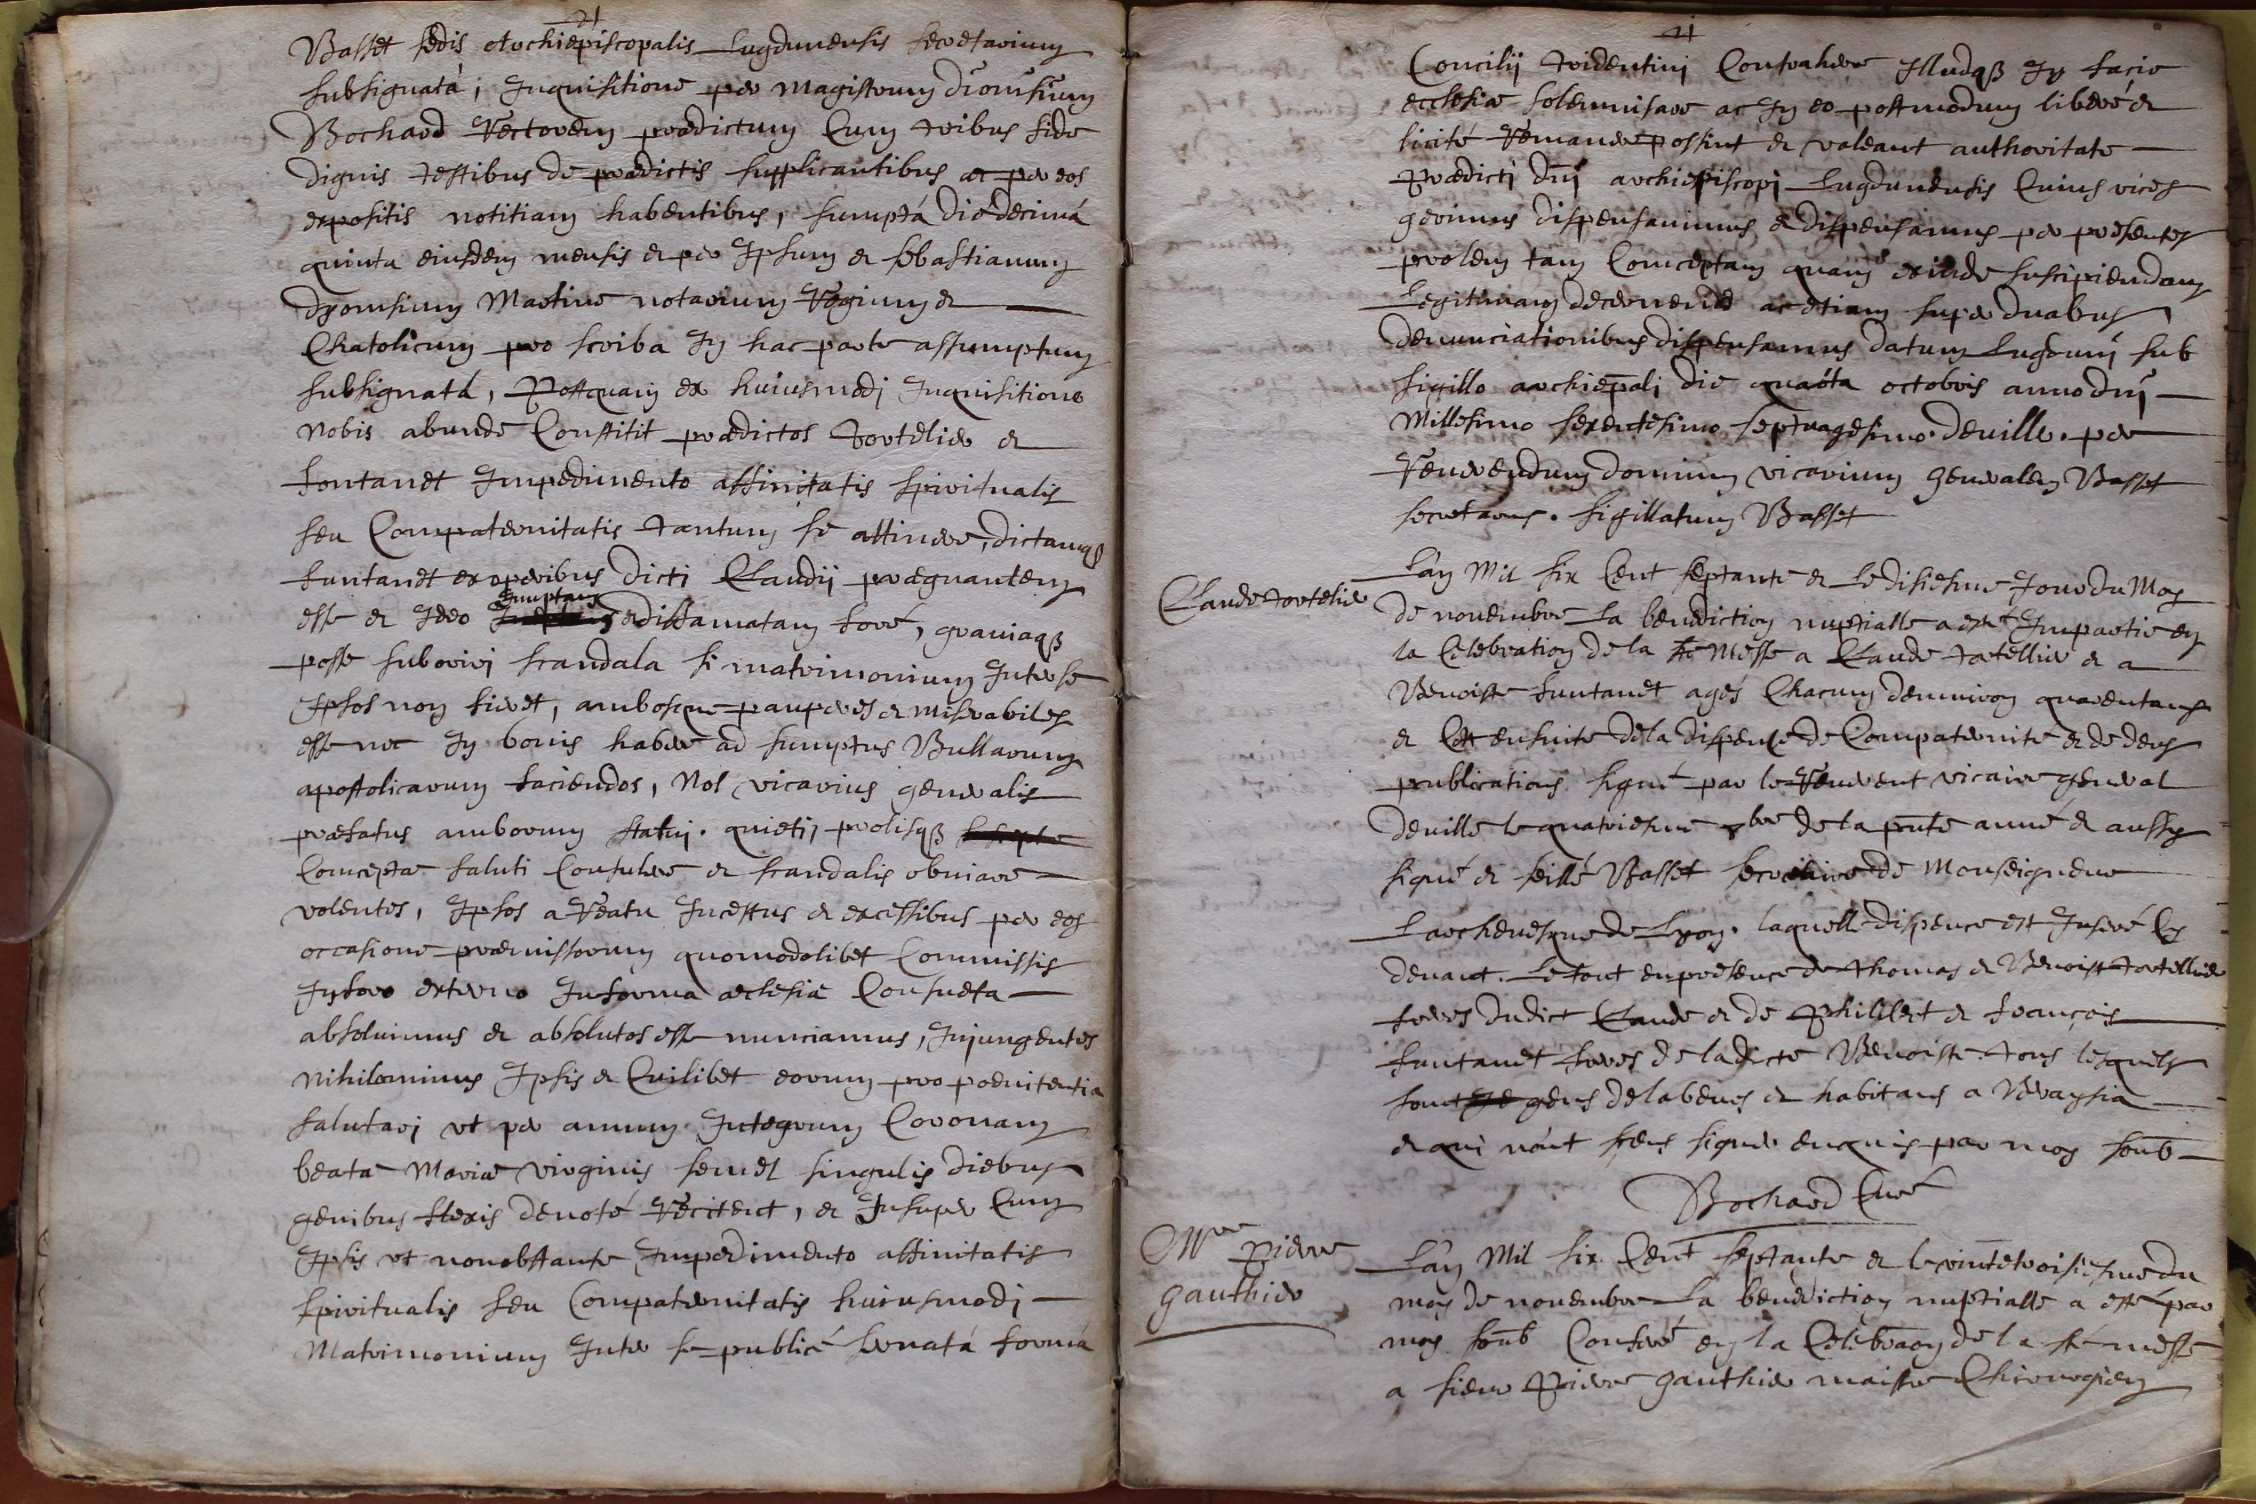 Basset sedis Archiepiscopalis Lugdunensis secretarium
subsignatá, Inquisitione per magistrum Dionisium
Bochard Rectorem praedictum Cum tribus fide
dignis testibus de praedictis supplicantibus ac per eos
expositis notitiam habentibus, sumptá die decimá
quinta eiusdem mensis et per Ipsum et sebastianum
Dyonisium Martine notarium Regium et
Chatolicum pro scriba In hac parte assumptum
subsignatá, Postquam ex huiusmodi Inquisitione
Nobis abunde Constitit praedictos tortelier et
fontanet Impedimento affinitatis spiritualis
seu Compaternitatis tantum se attinere, dictamqß
funtanet ex operibus dicti Claudij praegnantem
esse et Ideo Innuptam et diffamatam foré, grauiaqß
posse suboriri scandala si matrimonium Inter se
Ipsos non fieret, ambosque pauperes et miserabiles
esse nec In bonis habere ad sumptus Bullarum
apostolicarum faciendos, Nos vicarius generalis
praefatus amborum statui. quieti, prolisqß
Conceptae saluti Consulere et scandalis obuiare
volentes, Ipsos a Reatu Incestus et excessibus per eos
occasione praemissorum quomodolibet Commissis
In foro externo In forma aeclesiae Consueta
absoluimus et absolutos esse nunciamus, Injungentes
Nihilominus Ipsis et Cuilibet eorum pro poenitentia
salutari vt per annum Integrum Coronam
beatae Mariae virginis semel singulis diebus
genibus flexis deuoté Recitent, et Insuper Cum
Ipsis vt nonobstante Impedimento affinitatis
spiritualis seu Compaternitatis huiusmodi
Matrimonium Inter se publicé seruatá formá
Concilij tridentini Contrahere Illudqß In facie
ecclesiae solemnisare ac In eo postmodum liberé et
licité Remanere possint et valeant authoritate
Praedicti dnj archiepiscopi Lugdunensis Cuius vices
gerimus dispensauimus et dispensamus per presentes
prolem tam Conceptam quam exinde suscipiendam
Legitimam decernendo ac etiam super duabus
denunciationibus dispensamus datum Lugduni sub
sigillo archiepali die quarta octobris anno dni
Millesimo sexentesimo septuagesimo. deuille. per
Reuerendum dominum vicarium generalem Basset
secretarius. sigillatum Basset
Claude tortelier
L'an Mil six Cent septante et Le disiesme Jour du Moy
de nouembre La benediction nuptialle a esté Impartie en
la Celebration de la ste Messe a Claude tortellier et a
Benoiste funtanet agés Chacun denuiron quarentans
et Cett ensuite de la dispence de Compaternité et de deus
publications signé par le Reuerent vicaire general
deuille le quatriesme 8bre de la pnte anné et aussy
signé et seillé Basset secretaire de Monseigneur
L'archeuesque de Lyon. laquelle dispence est Inseré Cy
deuant. Le tout en presence de thomas et Benoist tortellier
freres dudict Claude et de Philibert et françois
funtanet freres de ladicte Benoiste. tous lesquels
sont gens de labeurs et habitans a
et qui n'ont sceus signer enquis par moy soub
Bochard Curé
Mre Pierre
gauthier
L'an Mil six Cent septante et le vintetroisiesme du
moy de nouembre La benediction nuptialle a esté par
moy soub Conferé en la Celebraon de la ste messe
a sieur Pierre gauthier maistre Chirurgien